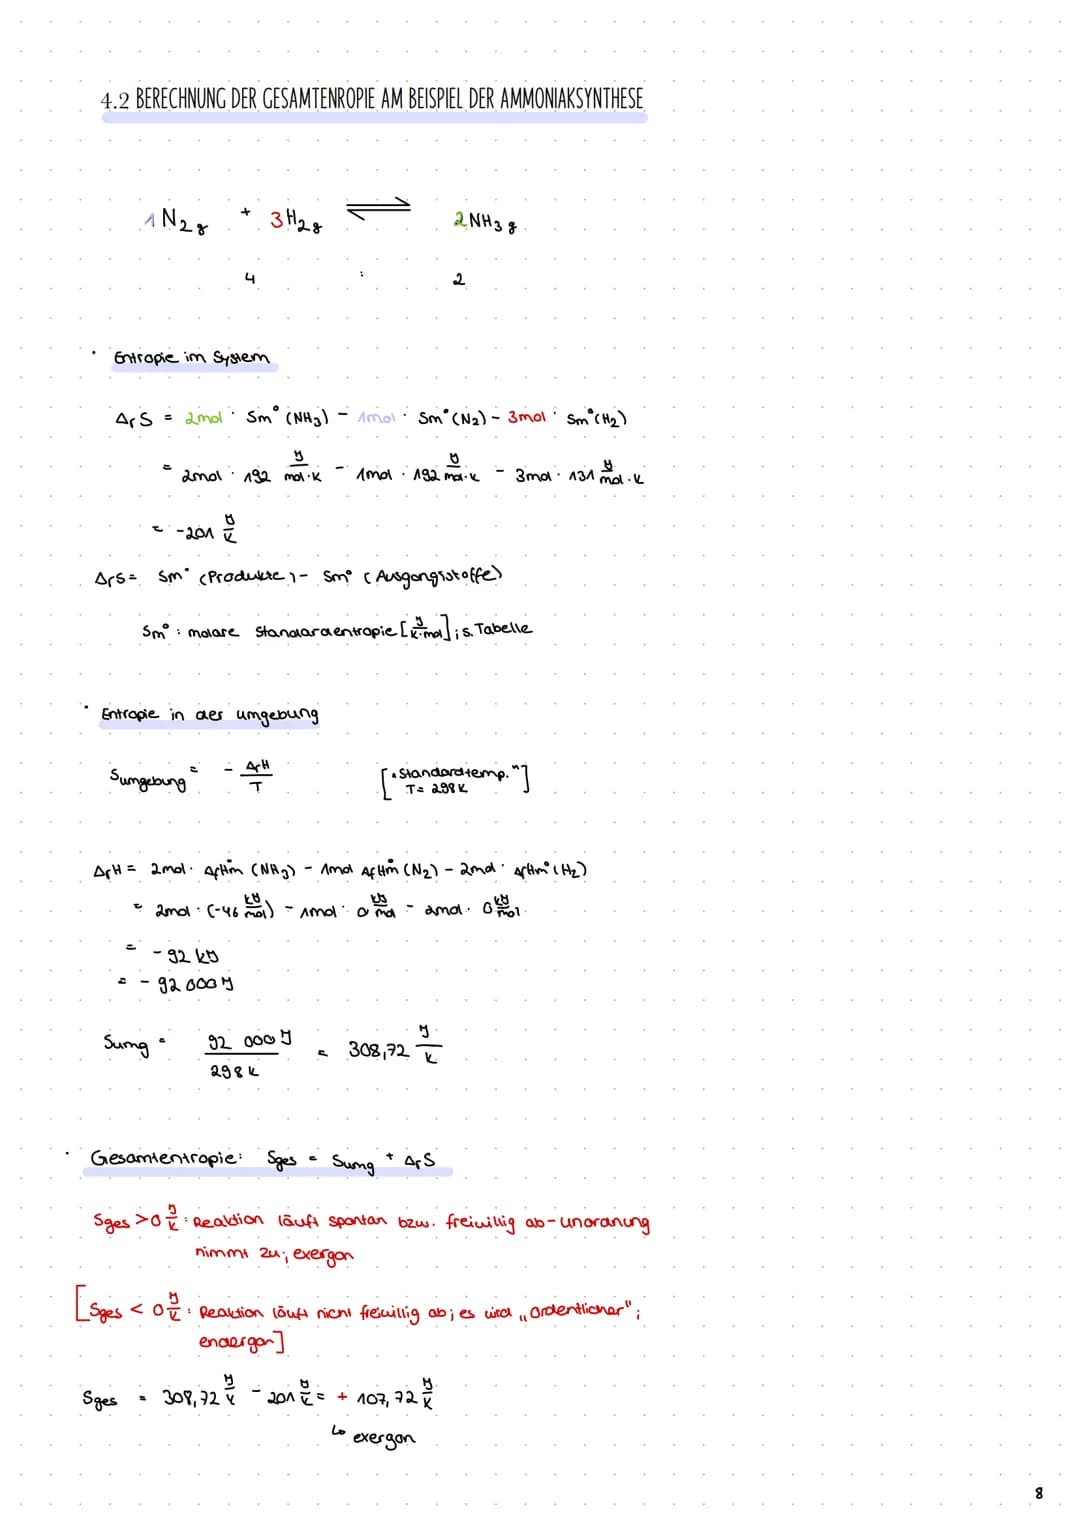 4.2 BERECHNUNG DER GESAMTENROPIE AM BEISPIEL DER AMMONIAKSYNTHESE
1 N₂ g + 3 H₂ g ⇌ 2 NH₃ g
4 : 2
• Entropie im System
ΔrS = 2mol · Sm° (NH₃) - 1mol · Sm° (N₂) - 3mol · Sm° (H₂)
= 2mol · 192 J/mol·K - 1mol · 192 J/mol·K - 3mol · 131 J/mol·K
= -201 J/K
ΔrS = Sm° (Produkte) - Sm° (Ausgangsstoffe)
Sm° : molare Standardentropie [J/K·mol] ; s. Tabelle
• Entropie in der umgebung
Sumgebung = - ΔrH/T [„Standardtemp."
T = 298 K]
ΔrH = 2mol · ΔfHm° (NH₃) - 1mol ΔfHm° (N₂) - 2mol · ΔfHm° (H₂)
= 2mol · (-46 kJ/mol) - 1mol · 0 kJ/mol - 2mol · 0 kJ/mol
= - 92 kJ
= - 92 000 J
Sumg = 92 000 J / 298 K = 308,72 J/K
• Gesamtentropie: Sges = Sumg + ΔrS
Sges > 0 J/K : Reaktion läuft spontan bzw. freiwillig ab - unordnung
nimmt zu ; exergon
[Sges < 0 J/K : Reaktion läuft nicht freiwillig ab ; es wird „ordentlicher" ;
endergon]
Sges = 308,72 J/K - 201 J/K = + 107,72 J/K
↳ exergon
8